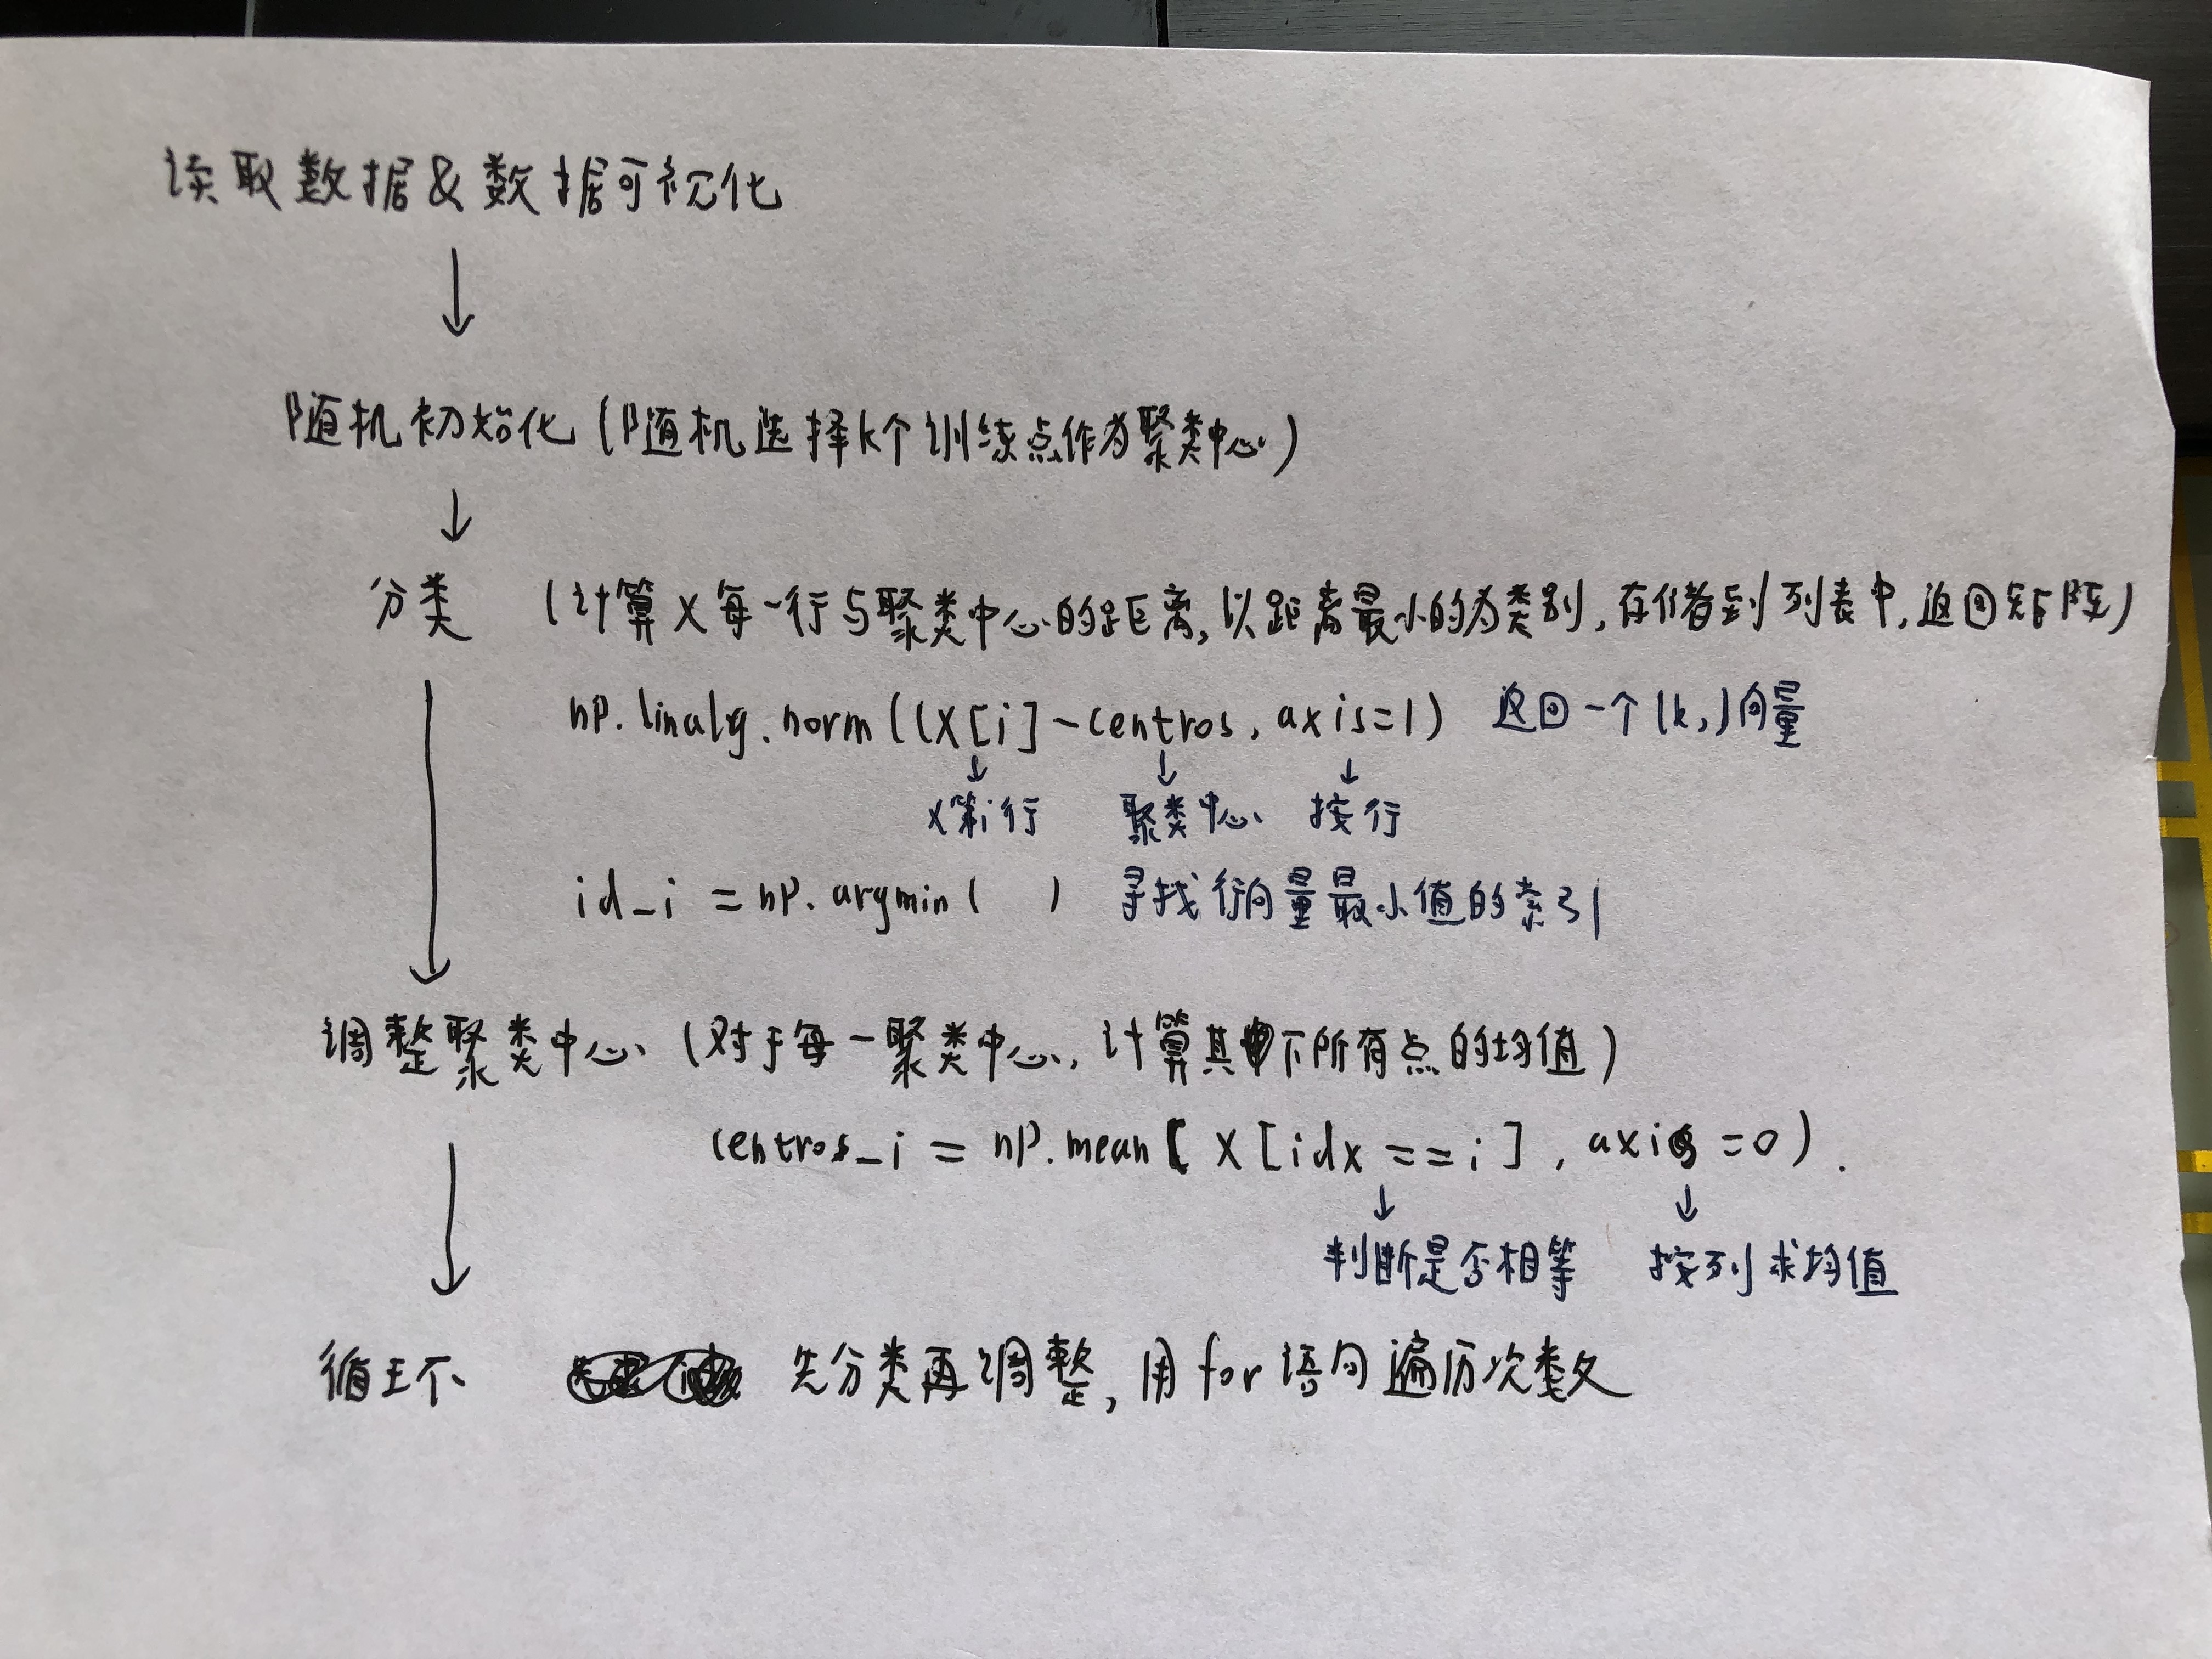 读取数据&数据可视化
↓
随机初始化(随机选择k个训练点作为聚类中心)
↓
分类 (计算X每一行与聚类中心的距离,以距离最小的为类别,存储到列表中,返回矩阵)
np.linalg.norm((X[i]-centros, axis=1) 返回一个(k,)向量
↓ ↓ ↓
X第i行 聚类中心 按行
id_i = np.argmin( ) 寻找行向量最小值的索引
↓
调整聚类中心 (对于每一聚类中心,计算其下所有点的均值)
centros_i = np.mean(X[idx == i], axis = 0).
↓ ↓
判断是否相等 按列求均值
↓
循环 先分类再调整,用for语句遍历次数